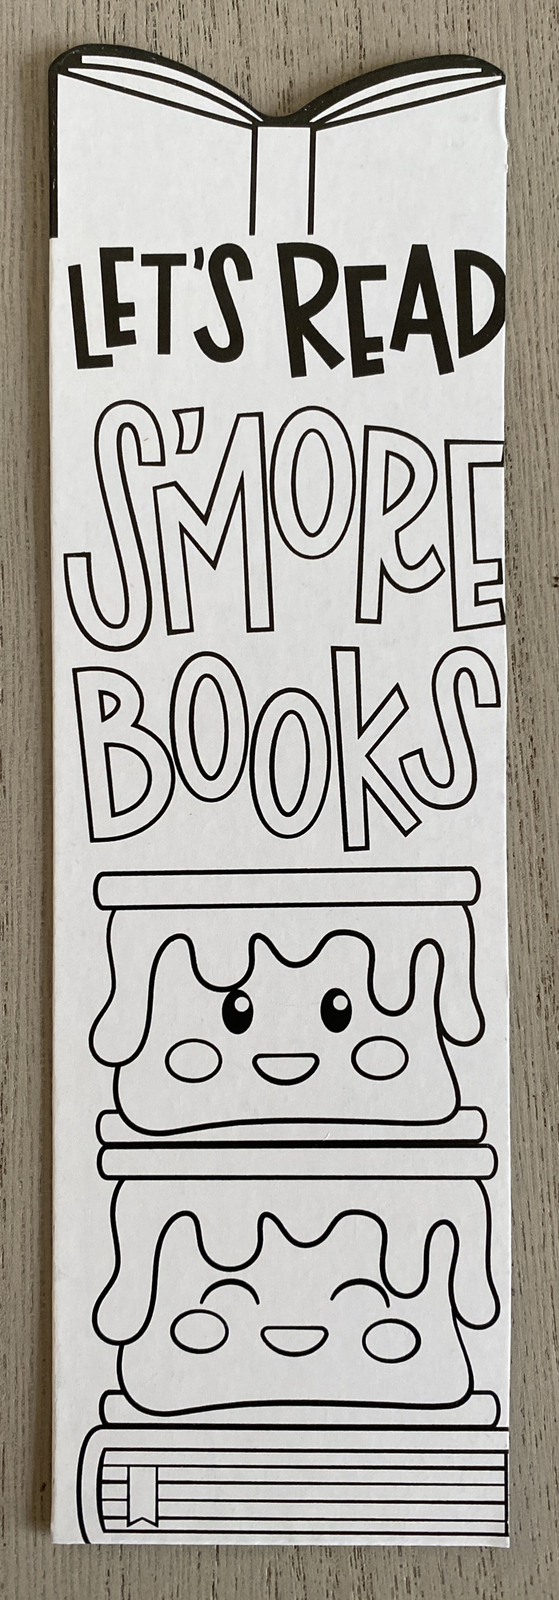 LET'S READ
S'MORE
BOOKS